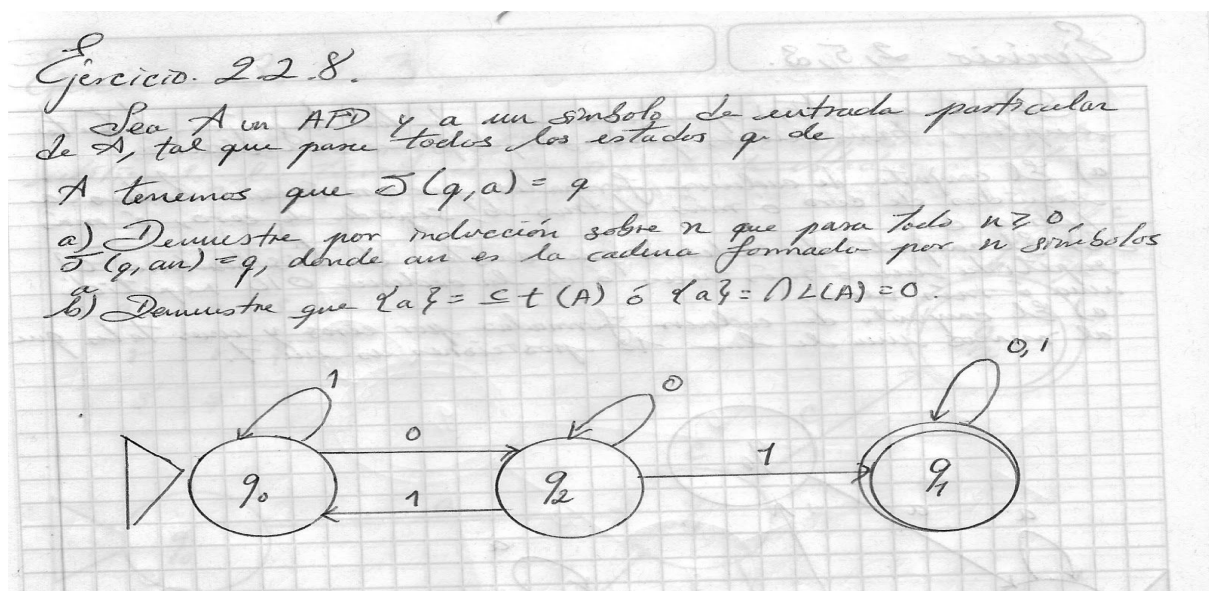 Ejercicio. 2.2.8.
Sea A un AFD y a un símbolo de entrada particular
de A, tal que para todos los estados q de
A tenemos que δ(q,a) = q
a) Demuestre por inducción sobre n que para todo n≥0,
δ̄(q,an)=q, donde an es la cadena formada por n símbolos
a
b) Demuestre que {a}= ⊆ t (A) ó {a}= ∩ L(A) = 0.
1
0
0,1
0
1
1
q0
q2
q1